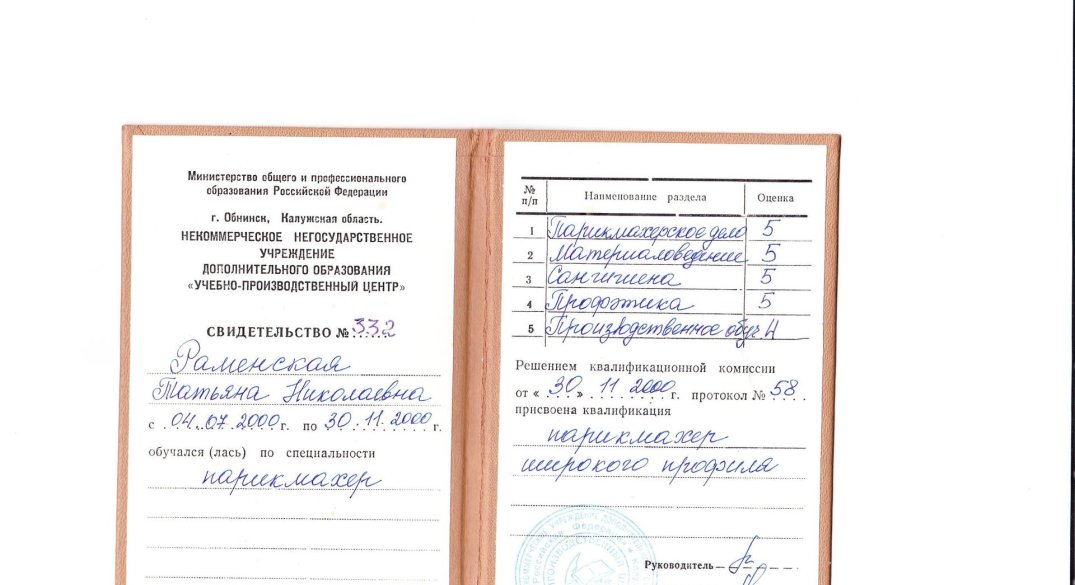 Министерство общего и профессионального
образования Российской Федерации
г. Обнинск, Калужская область.
НЕКОММЕРЧЕСКОЕ НЕГОСУДАРСТВЕННОЕ
УЧРЕЖДЕНИЕ
ДОПОЛНИТЕЛЬНОГО ОБРАЗОВАНИЯ
«УЧЕБНО-ПРОИЗВОДСТВЕННЫЙ ЦЕНТР»
СВИДЕТЕЛЬСТВО № 332
Раменская
Татьяна Николаевна
с 04.07.2000 г. по 30.11.2000 г.
обучался (лась) по специальности
парикмахер
№ п/п Наименование раздела Оценка
1 Парикмахерское дело 5
2 Материаловедение 5
3 Сангигиена 5
4 Профэтика 5
5 Производственное обуч. 4
Решением квалификационной комиссии
от « 30 » 11 2000 г. протокол № 58
присвоена квалификация
парикмахер
широкого профиля
Руководитель